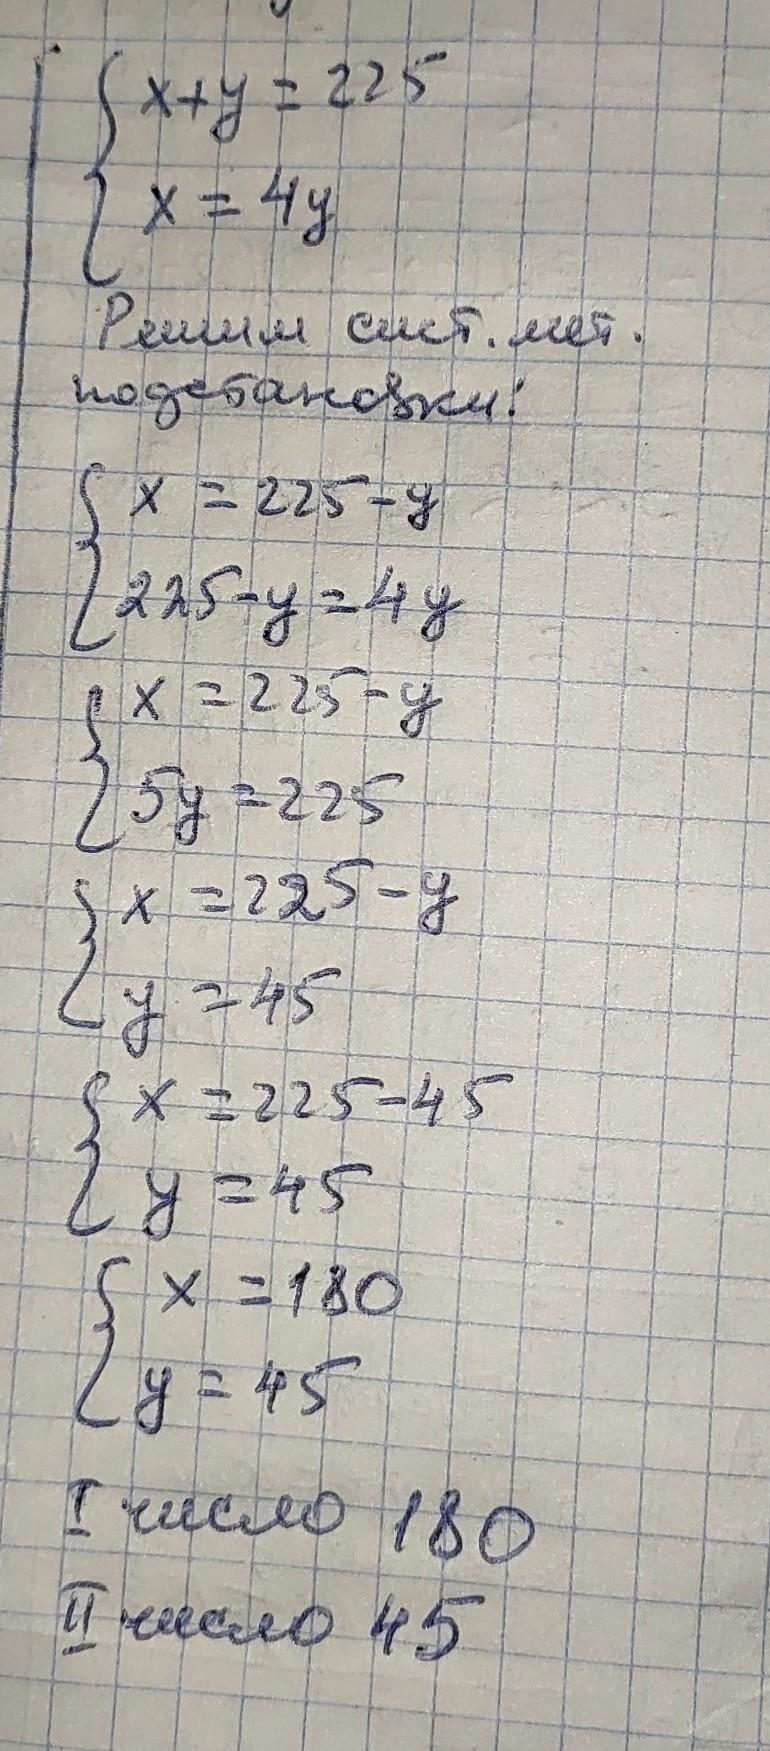 { x+y = 225
x = 4y
Решим сист. мет.
подстановки:
{ x = 225-y
225-y=4y
{ x = 225-y
5y = 225
{ x = 225-y
y = 45
{ x = 225-45
y = 45
{ x = 180
y = 45
I число 180
II число 45